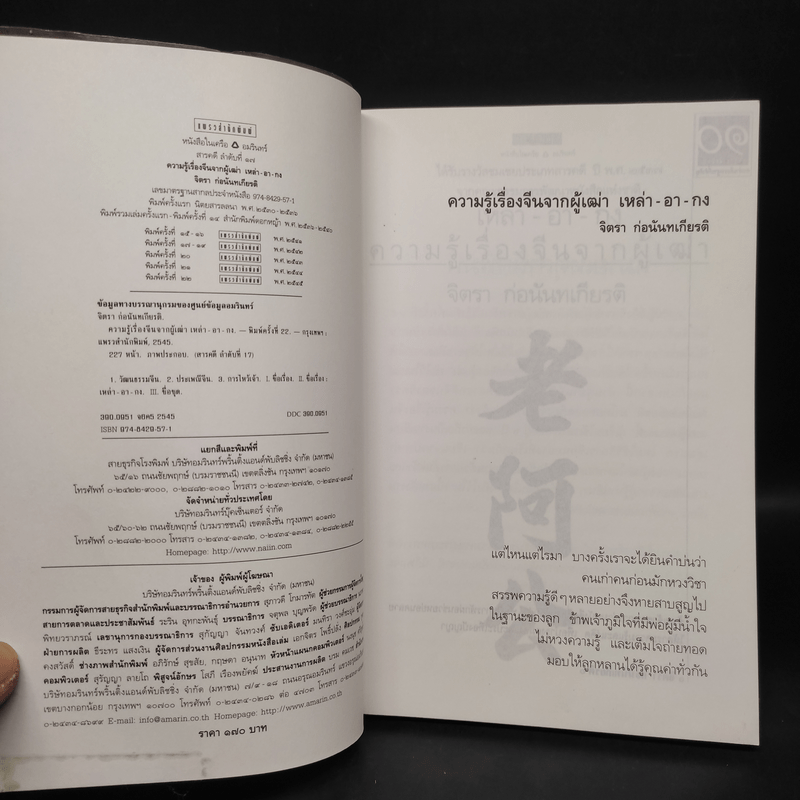 แพรวสำนักพิมพ์
หนังสือในเครือ อมรินทร์
สารคดี ลำดับที่ ๑๗
ความรู้เรื่องจีนจากผู้เฒ่า เหล่า-อา-กง
จิตรา ก่อนันทเกียรติ
เลขมาตรฐานสากลประจำหนังสือ 974-8429-57-1
พิมพ์ครั้งแรก นิตยสารลลนา พ.ศ. ๒๕๓๐-๒๕๓๖
พิมพ์รวมเล่มครั้งแรก-พิมพ์ครั้งที่ ๑๔ สำนักพิมพ์ดอกหญ้า พ.ศ.
พิมพ์ครั้งที่ ๑๕ - ๑๖ แพรวสำนักพิมพ์ พ.ศ. ๒๕๔๑
พิมพ์ครั้งที่ ๑๗ - ๑๙ แพรวสำนักพิมพ์ พ.ศ. ๒๕๔๒
พิมพ์ครั้งที่ ๒๐ แพรวสำนักพิมพ์ พ.ศ. ๒๕๔๓
พิมพ์ครั้งที่ ๒๑ แพรวสำนักพิมพ์ พ.ศ. ๒๕๔๔
พิมพ์ครั้งที่ ๒๒ แพรวสำนักพิมพ์ พ.ศ. ๒๕๔๕
ข้อมูลทางบรรณานุกรมของศูนย์ข้อมูลอมรินทร์
จิตรา ก่อนันทเกียรติ.
ความรู้เรื่องจีนจากผู้เฒ่า เหล่า-อา-กง. -- พิมพ์ครั้งที่ 22. -- กรุงเทพฯ :
แพรวสำนักพิมพ์, 2545.
227 หน้า. ภาพประกอบ. (สารคดี ลำดับที่ 17)
1. วัฒนธรรมจีน. 2. ประเพณีจีน. 3. การไหว้เจ้า. I. ชื่อเรื่อง. II. ชื่อเรื่อง :
เหล่า-อา-กง. III. ชื่อชุด.
390.0951 จ6ค5 2545 DDC 390.0951
ISBN 974-8429-57-1
แยกสีและพิมพ์ที่
สายธุรกิจโรงพิมพ์ บริษัทอมรินทร์พริ้นติ้งแอนด์พับลิชชิ่ง จำกัด (มหาชน)
๖๕/๑๖ ถนนชัยพฤกษ์ (บรมราชชนนี) เขตตลิ่งชัน กรุงเทพฯ ๑๐๑๗๐
โทรศัพท์ ๐-๒๔๒๒-๙๐๐๐, ๐-๒๘๘๒-๑๐๑๐ โทรสาร ๐-๒๔๓๓-๒๗๔๒, ๐-๒๔๓๔-๑๓๘๕
จัดจำหน่ายทั่วประเทศโดย
บริษัทอมรินทร์บุ๊คเซ็นเตอร์ จำกัด
๖๕/๖๐-๖๒ ถนนชัยพฤกษ์ (บรมราชชนนี) เขตตลิ่งชัน กรุงเทพฯ ๑๐๑๗๐
โทรศัพท์ ๐-๒๘๘๒-๒๐๐๐ โทรสาร ๐-๒๔๓๓-๑๓๘๔, ๐-๒๔๓๔-๑๓๘๔,
Homepage: http://www.naiin.com
เจ้าของ ผู้พิมพ์ผู้โฆษณา
บริษัทอมรินทร์พริ้นติ้งแอนด์พับลิชชิ่ง จำกัด (มหาชน)
กรรมการผู้จัดการสายธุรกิจสำนักพิมพ์และบรรณาธิการอำนวยการ สุภาวดี โกมารทัต
สายการตลาดและประชาสัมพันธ์ ระริน อุทกะพันธุ์ บรรณาธิการ จตุพล บุญพรัด
พิทยวราภรณ์ เลขานุการกองบรรณาธิการ สุกัญญา จันทวงศ์ ซับเอดิเตอร์
ฝ่ายการผลิต ธีระพร แสงเงิน ผู้จัดการส่วนงานศิลปกรรมหนังสือเล่ม เอกจิตร
คงสวัสดิ์ ช่างภาพสำนักพิมพ์ อภิรักษ์ สุขสัย, กฤษดา อนุนาท หัวหน้าแผนกคอมพิวเตอร์
คอมพิวเตอร์ สุรัญญา พิสูจน์อักษร โสภี เรืองพยัคฆ์ ประสานงานการผลิต
บริษัทอมรินทร์พริ้นติ้งแอนด์พับลิชชิ่ง จำกัด (มหาชน) ๗/๙-๑๘ ถนนอรุณอมรินทร์
เขตบางกอกน้อย กรุงเทพฯ ๑๐๗๐๐ โทรศัพท์ ๐-๒๔๓๔-๐๒๘๖ ต่อ ๔๗๐๓ โทรสาร
๐-๒๔๓๔-๘๖๙๙ E-mail: info@amarin.co.th Homepage: http://www.amarin.co.th
ราคา ๑๗๐ บาท
ความรู้เรื่องจีนจากผู้เฒ่า เหล่า-อา-กง
จิตรา ก่อนันทเกียรติ
แต่ไหนแต่ไรมา บางครั้งเราจะได้ยินคำบ่นว่า
คนเก่าคนก่อนมักหวงวิชา
สรรพความรู้ดีๆ หลายอย่างจึงหายสาบสูญไป
ในฐานะของลูก ข้าพเจ้าภูมิใจที่มีพ่อผู้มีน้ำใจ
ไม่หวงความรู้ และเต็มใจถ่ายทอด
มอบให้ลูกหลานได้รู้คุณค่าทั่วกัน